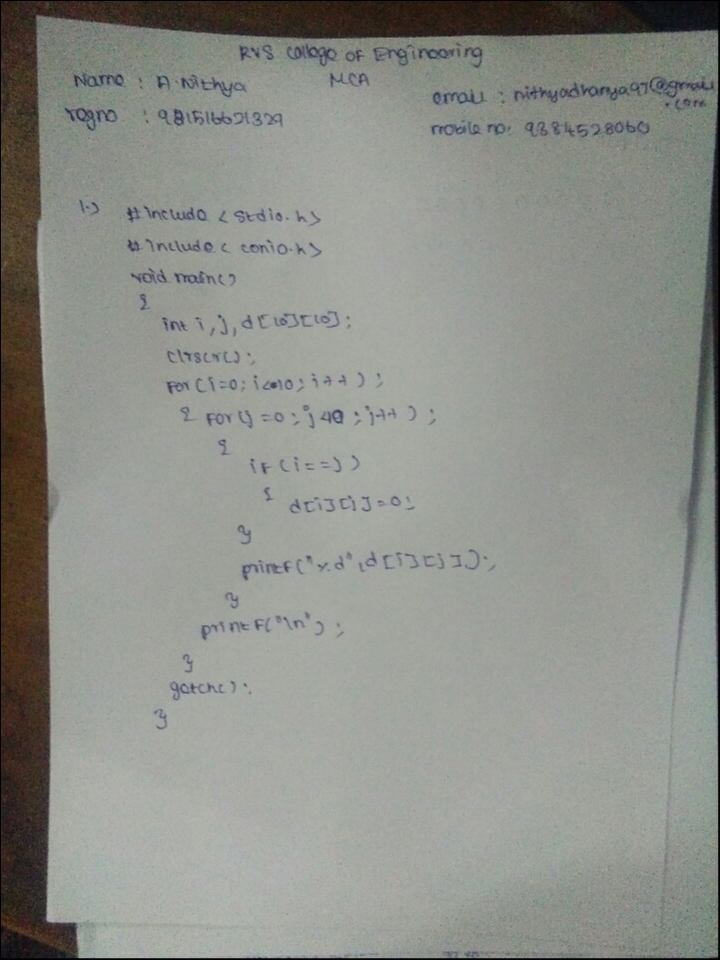 RVS College OF Engineering
Name : A. Nithya MCA
email : nithyadhanya97@gmail.com
regno : 921516621329
mobile no: 9384528060
1.) #include <stdio.h>
#include< conio.h>
void main()
{
int i, j, d[10][10];
clrscr();
For(i=0; i<10; i++ );
{ For(j =0; j<10; j++ );
{
iF (i==j)
{ d[i][j]=0;
}
printF("%d",d[i][j]);
}
printF("\n");
}
getch();
}